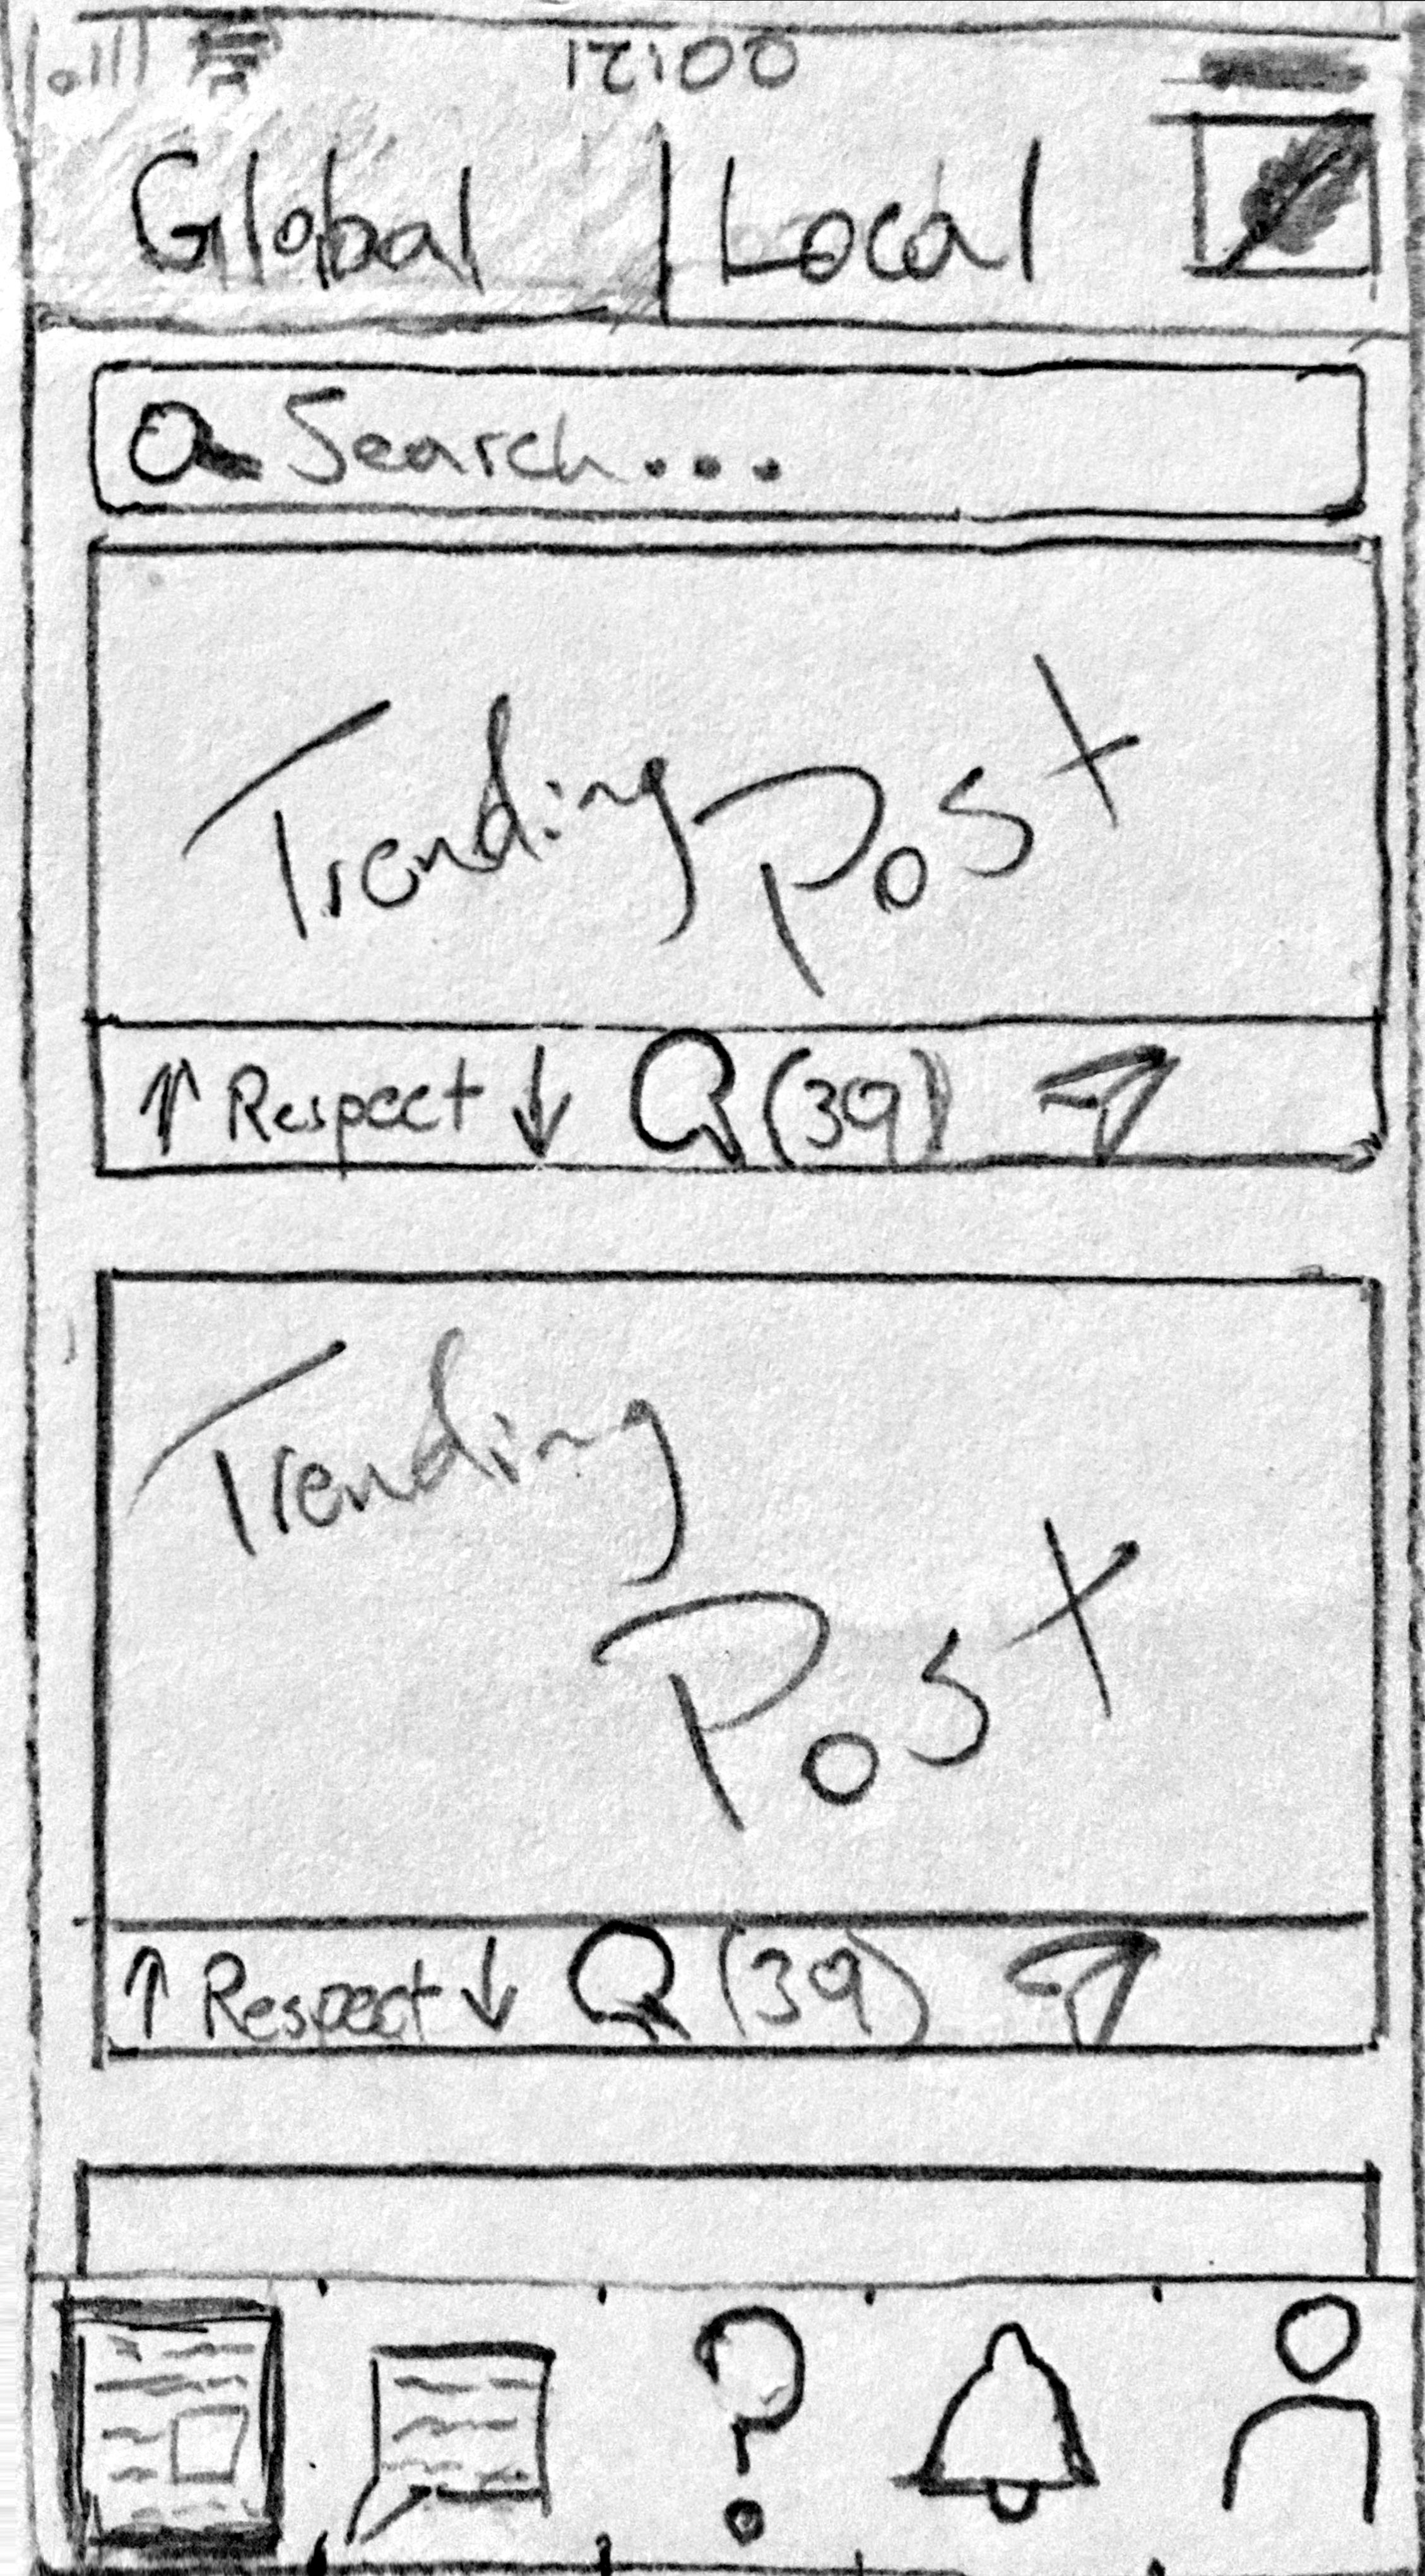 12:00
Global | Local
Search...
Trending Post
↑ Respect ↓ (39)
Trending
Post
↑ Respect ↓ (39)
?